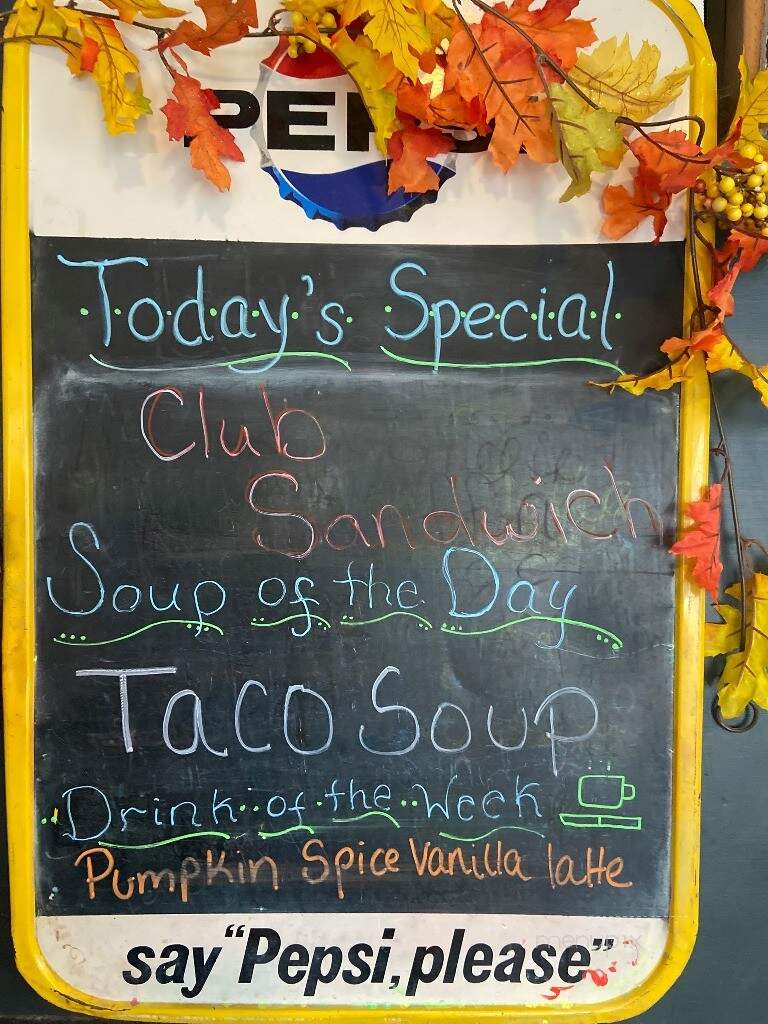 PEPSI
Today's Special
Club
Sandwich
Soup of the Day
Taco Soup
Drink of the Week
Pumpkin Spice Vanilla latte
say "Pepsi, please"